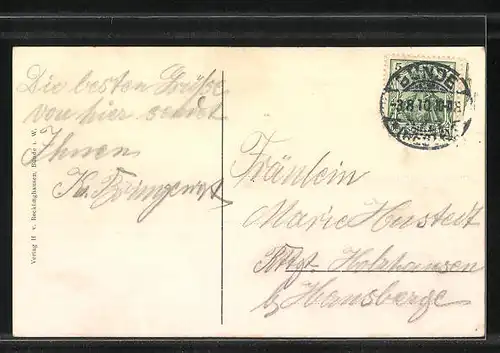 Die besten Grüße
von hier sendet
Ihnen
K.
Verlag H. v. Recklinghausen, Bünde i. W.
5
BÜNDE
-3.8.10
(WESTF.)
Fräulein
Marie Hustedt
Rttgt. Holzhausen
b/ Hausberge